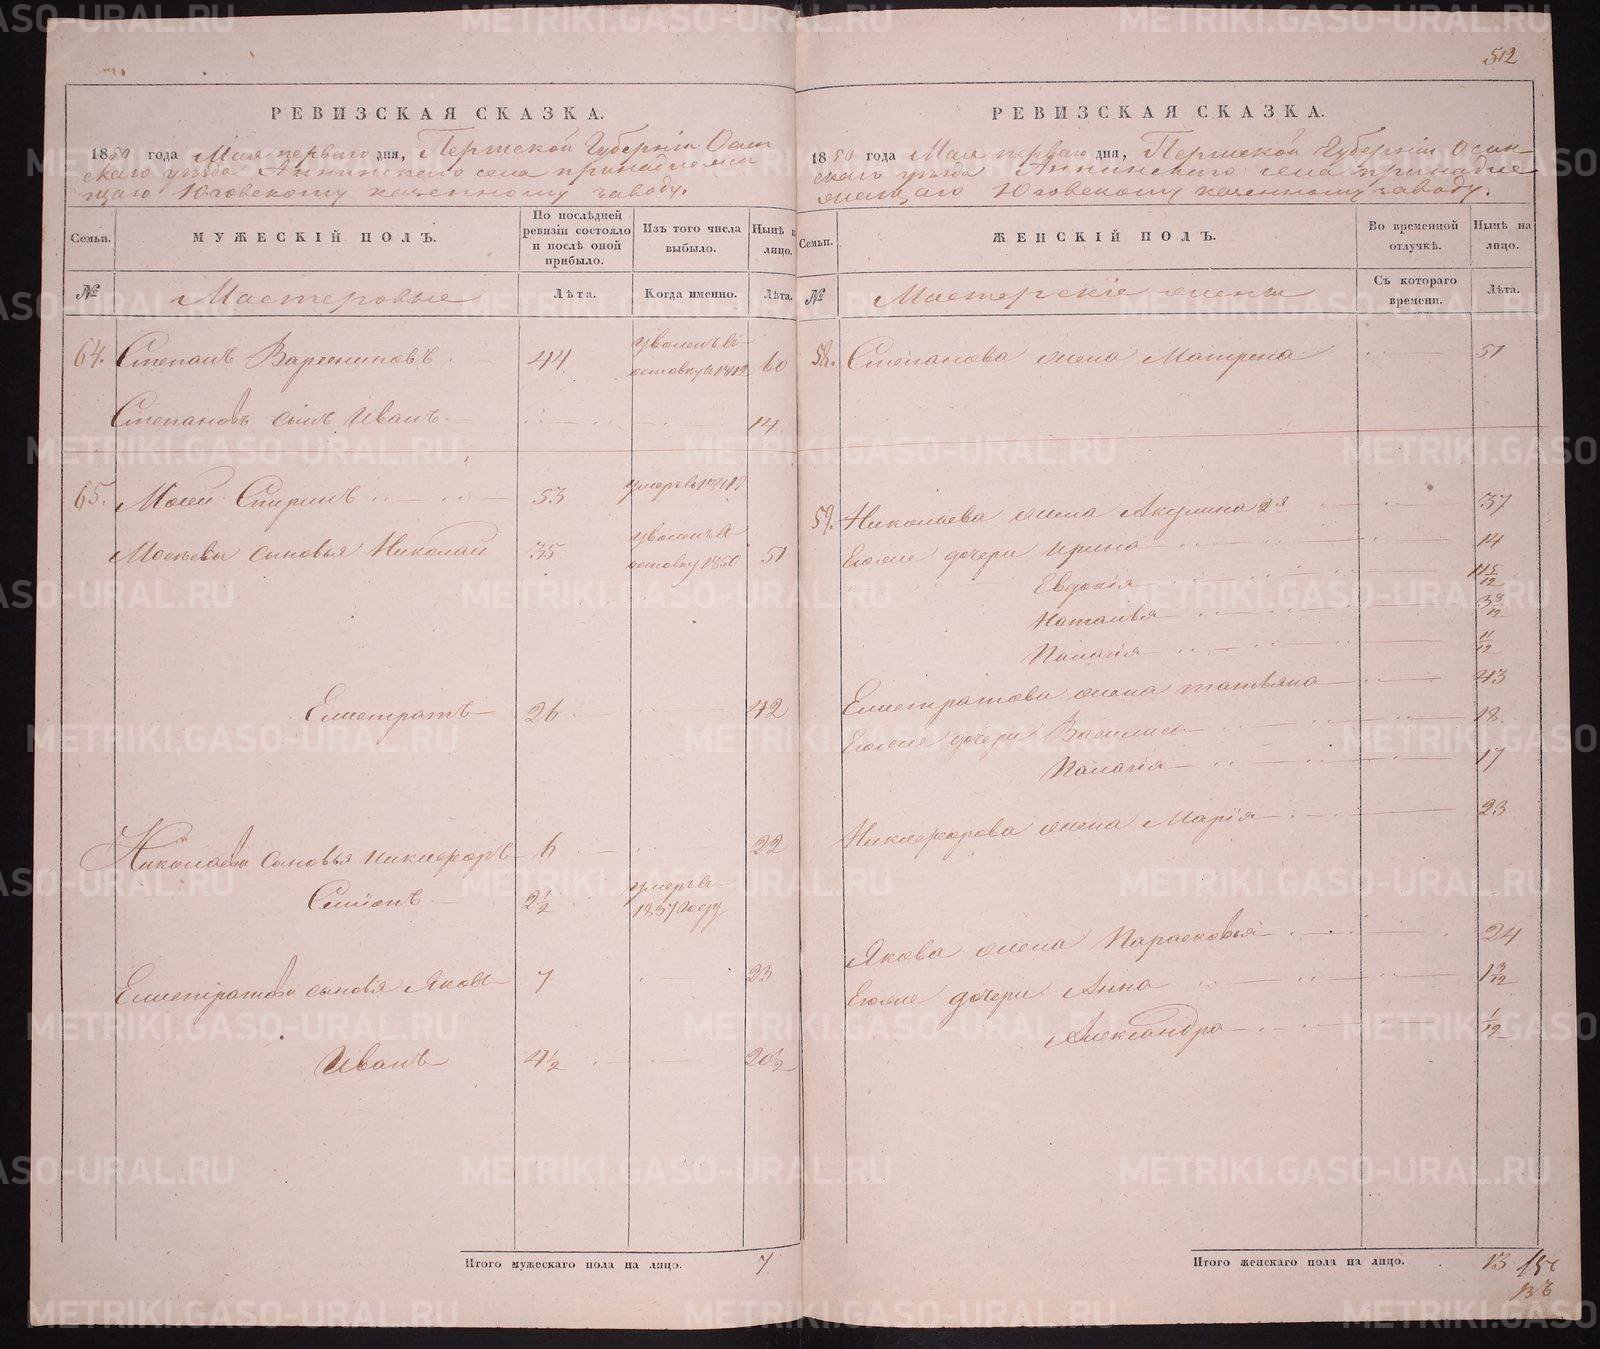 512
РЕВИЗСКАЯ СКАЗКА.
1850 года Мая перваго дня, Пермской Губерніи Осин
скаго уѣзда Аннинскаго села принадлежа
щаго Юговскому казенному заводу.
Семьи.
МУЖЕСКІЙ ПОЛЪ.
По послѣдней ревизіи состояло и послѣ оной прибыло.
Изъ того числа выбыло.
Нынѣ на лицо.
№
Мастеровые
Лѣта.
Когда именно.
Лѣта.
64. Степанъ Варениковъ 44 уволенъ въ
отставку в 60
Степановъ сынъ Иванъ 14
65. Мосей Спиринъ 53 умеръ въ
Мосеевы сыновья Николай 35 уволенъ в
отставку 1850 51
Елистратъ 26 42
Николаевы сыновья Никифоръ 6 22
Симіонъ 2 1/2 умеръ въ
1837 году
Елистратовы сыновья Яковъ 7 23
Иванъ 4 1/2 20 1/2
Итого мужескаго пола на лицо. 7
РЕВИЗСКАЯ СКАЗКА.
1850 года Мая перваго дня, Пермской Губерніи Осин-
скаго уѣзда Аннинскаго села принадле
жащаго Юговскому казенному заводу.
Семьи.
ЖЕНСКІЙ ПОЛЪ.
Во временной отлучкѣ.
Нынѣ на лицо.
№
Мастерскіе жены
Съ котораго времени.
Лѣта.
58. Степанова жена Матрена 51
59. Николаева жена Акулина 2я 37
Егоже дочери Ирина 14
Евдокія 11 5/12
Наталья 3 3/12
Палагія 11/12
Елистратова жена Татьяна 43
Егоже дочери Василиса 18
Палагія 17
Никифорова жена Марія 23
Якова жена Парасковья 24
Егоже дочери Анна 1 3/12
Александра 1/12
Итого женскаго пола на лицо. 13